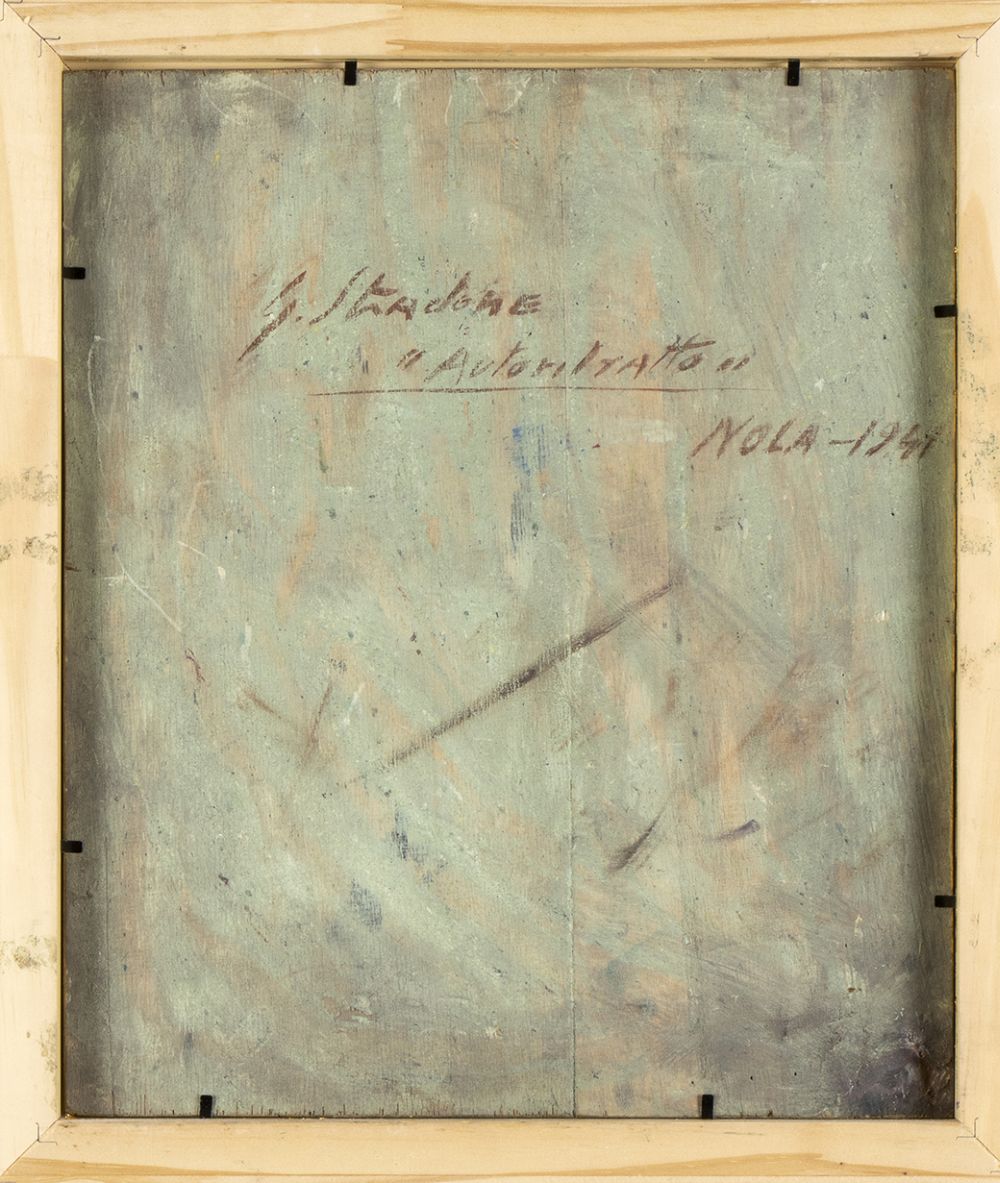 G. Stradone
"Autoritratto"
NOLA - 1941